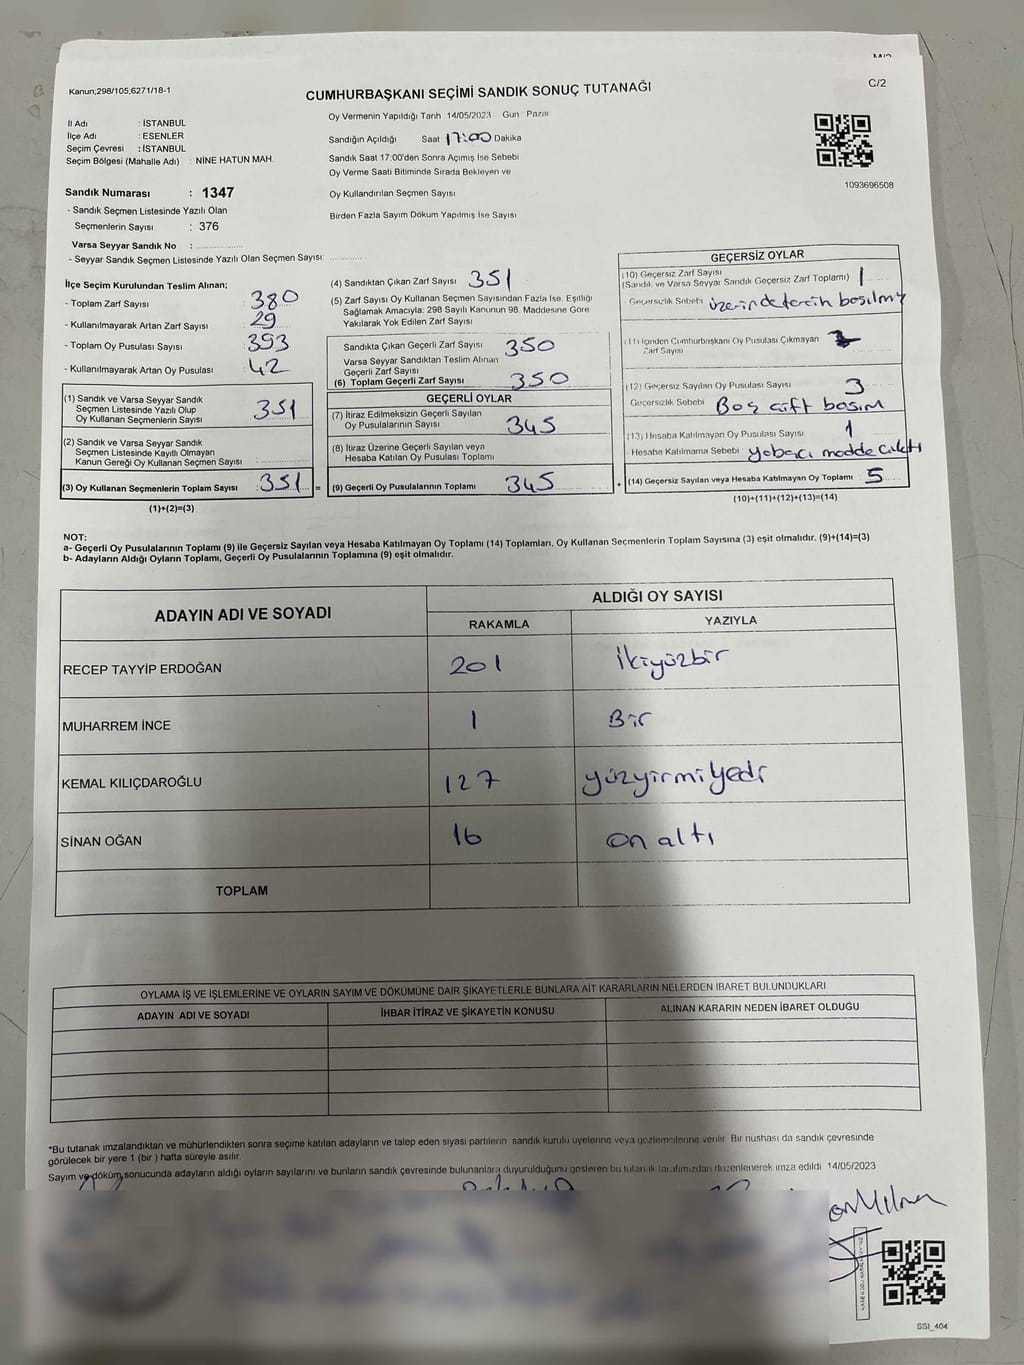 Kanun;298/105;6271/18-1
C/2
CUMHURBAŞKANI SEÇİMİ SANDIK SONUÇ TUTANAĞI
İl Adı : İSTANBUL
İlçe Adı : ESENLER
Seçim Çevresi : İSTANBUL
Seçim Bölgesi (Mahalle Adı) : NİNE HATUN MAH.
Sandık Numarası : 1347
- Sandık Seçmen Listesinde Yazılı Olan
Seçmenlerin Sayısı : 376
Varsa Seyyar Sandık No :
- Seyyar Sandık Seçmen Listesinde Yazılı Olan Seçmen Sayısı:
Oy Vermenin Yapıldığı Tarih 14/05/2023 Gün Pazar
Sandığın Açıldığı Saat 17:00 Dakika
Sandık Saat 17:00'den Sonra Açımış İse Sebebi
Oy Verme Saati Bitiminde Sırada Bekleyen ve
Oy Kullandırılan Seçmen Sayısı
Birden Fazla Sayım Döküm Yapılmış İse Sayısı
1093696508
İlçe Seçim Kurulundan Teslim Alınan;
- Toplam Zarf Sayısı : 380
- Kullanılmayarak Artan Zarf Sayısı : 29
- Toplam Oy Pusulası Sayısı : 393
- Kullanılmayarak Artan Oy Pusulası : 42
(1) Sandık ve Varsa Seyyar Sandık
Seçmen Listesinde Yazılı Olup
Oy Kullanan Seçmenlerin Sayısı : 351
(2) Sandık ve Varsa Seyyar Sandık
Seçmen Listesinde Kayıtlı Olmayan
Kanun Gereği Oy Kullanan Seçmen Sayısı :
(3) Oy Kullanan Seçmenlerin Toplam Sayısı : 351 =
(1)+(2)=(3)
(4) Sandıktan Çıkan Zarf Sayısı 351
(5) Zarf Sayısı Oy Kullanan Seçmen Sayısından Fazla İse, Eşitliği
Sağlamak Amacıyla; 298 Sayılı Kanunun 98. Maddesine Göre
Yakılarak Yok Edilen Zarf Sayısı
Sandıkta Çıkan Geçerli Zarf Sayısı 350
Varsa Seyyar Sandıktan Teslim Alınan
Geçerli Zarf Sayısı
(6) Toplam Geçerli Zarf Sayısı 350
GEÇERLİ OYLAR
(7) İtiraz Edilmeksizin Geçerli Sayılan
Oy Pusulalarının Sayısı 345
(8) İtiraz Üzerine Geçerli Sayılan veya
Hesaba Katılan Oy Pusulası Toplamı
(9) Geçerli Oy Pusulalarının Toplamı 345 +
GEÇERSİZ OYLAR
(10) Geçersiz Zarf Sayısı
(Sandık ve Varsa Seyyar Sandık Geçersiz Zarf Toplamı) 1
Geçersizlik Sebebi üzerinde tercih basılmış
(11) İçinden Cumhurbaşkanı Oy Pusulası Çıkmayan
Zarf Sayısı
(12) Geçersiz Sayılan Oy Pusulası Sayısı 3
Geçersizlik Sebebi Boş çift basım
(13) Hesaba Katılmayan Oy Pusulası Sayısı 1
Hesaba Katılmama Sebebi yabacı madde çıktı
(14) Geçersiz Sayılan veya Hesaba Katılmayan Oy Toplamı 5
(10)+(11)+(12)+(13)=(14)
NOT:
a- Geçerli Oy Pusulalarının Toplamı (9) ile Geçersiz Sayılan veya Hesaba Katılmayan Oy Toplamı (14) Toplamları, Oy Kullanan Seçmenlerin Toplam Sayısına (3) eşit olmalıdır. (9)+(14)=(3)
b- Adayların Aldığı Oyların Toplamı, Geçerli Oy Pusulalarının Toplamına (9) eşit olmalıdır.
ADAYIN ADI VE SOYADI
ALDIĞI OY SAYISI
RAKAMLA YAZIYLA
RECEP TAYYİP ERDOĞAN 201 ikiyüzbir
MUHARREM İNCE 1 Bir
KEMAL KILIÇDAROĞLU 127 yüzyirmiyedi
SİNAN OĞAN 16 on altı
TOPLAM
OYLAMA İŞ VE İŞLEMLERİNE VE OYLARIN SAYIM VE DÖKÜMÜNE DAİR ŞİKAYETLERLE BUNLARA AİT KARARLARIN NELERDEN İBARET BULUNDUKLARI
ADAYIN ADI VE SOYADI İHBAR İTİRAZ VE ŞİKAYETİN KONUSU ALINAN KARARIN NEDEN İBARET OLDUĞU
*Bu tutanak imzalandıktan ve mühürlendikten sonra seçime katılan adayların ve talep eden siyasi partilerin sandık kurulu üyelerine veya gözlemcilerine verilir. Bir nushası da sandık çevresinde
görülecek bir yere 1 (bir ) hafta süreyle asılır.
Sayım ve döküm sonucunda adayların aldığı oyların sayılarını ve bunların sandık çevresinde bulunanlara duyurulduğunu gösteren bu tutanak tarafımızdan düzenlenerek imza edildi 14/05/2023
SSI_404